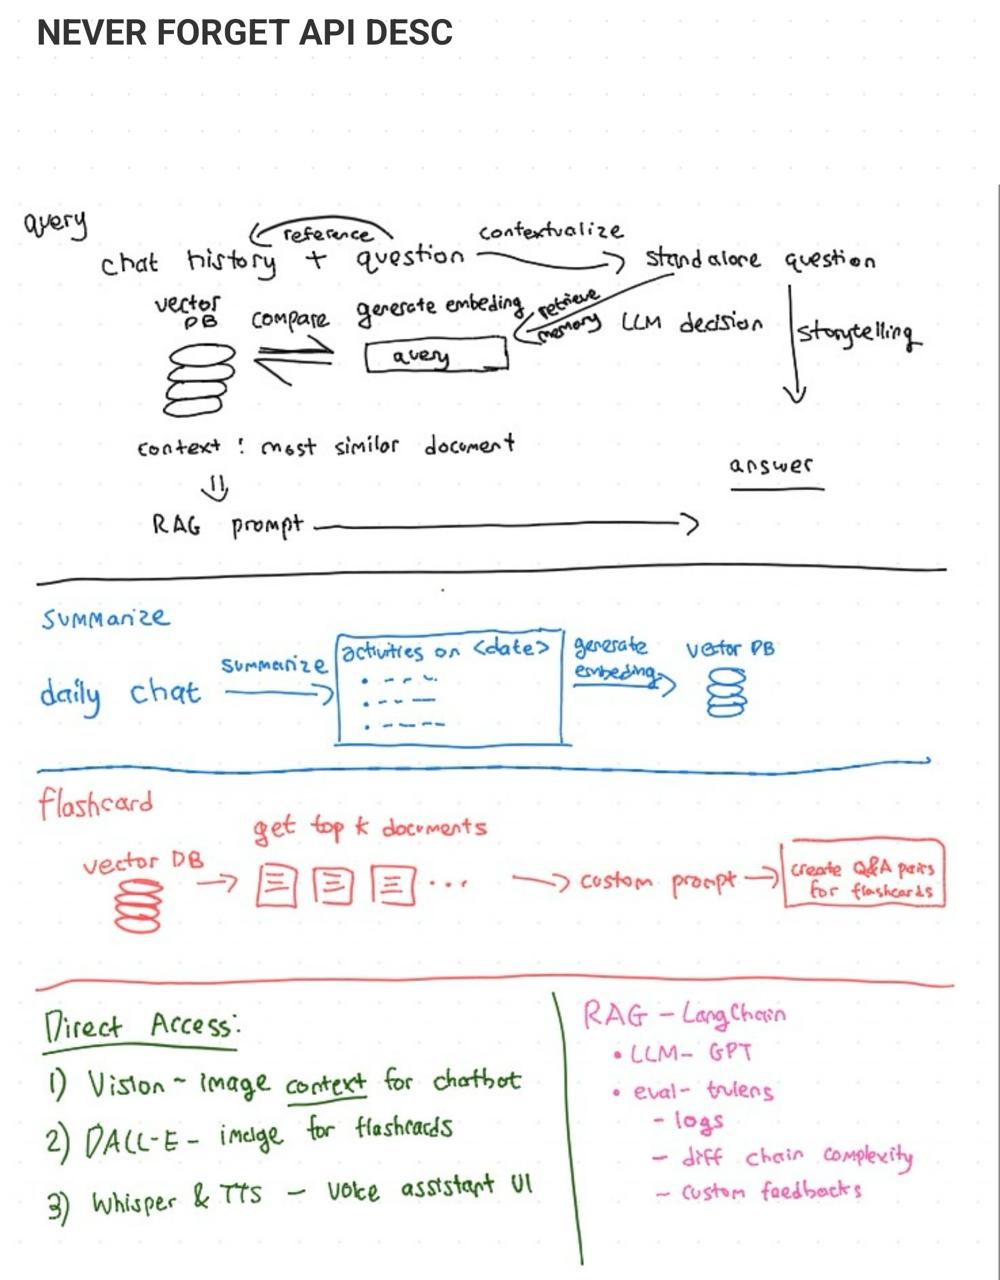 NEVER FORGET API DESC
query
reference
contextualize
chat history + question
standalone question
vector DB
compare
generate embeding
retrieve memory
LLM decision
storytelling
query
context : most similar document
answer
RAG prompt
summarize
daily chat
summarize
activities on <date>
generate embeding
vector DB
flashcard
get top k documents
vector DB
...
custom prompt
create Q&A pairs
for flashcards
Direct Access:
1) Vision - image context for chatbot
2) DALL-E - image for flashcards
3) Whisper & TTS - voice assistant UI
RAG - LangChain
• LLM - GPT
• eval - trulens
- logs
- diff chain complexity
- custom feedbacks